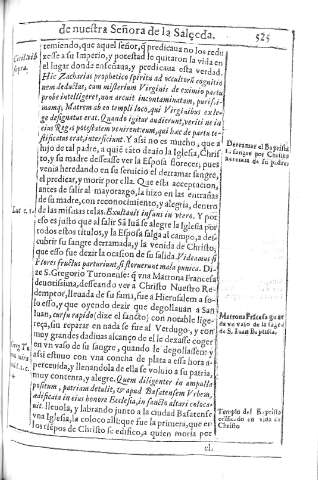 de nuestra Señora de la Salçeda.
525
temiendo, que aquel señor, q̃ predicaua no los redu
xesse a su Imperio, y potestad le quitaron la vida en
el lugar donde enseñaua, y predicaua esta verdad.
Hic Zacharias prophetico spiritu ad occultorũ cognitio
nem deductus, cum misterium Virginis de eximio partu
probe intelligeret, non arcuit incontaminatam, purissi-
mamq; Matrem ab eo templi loco, qui Virginibus ex le-
ge designatus erat. Quando igitur audierunt, veriti ne in
eius Regis potestatem venirent eum, qui hac de partu te-
stificatus erat, interficiunt. Y assi no es mucho, que a
hijo de tal padre, a quiẽ tãto deuio la Iglesia, Chris
to, y su madre desseasse ver la Esposa florecer, pues
venia heredando en su seruicio el derramar sangre,
el predicar, y morir por ella. Que esta acceptacion,
antes de salir al mayorazgo, la hizo en las entrañas
de su madre, con reconocimiento, y alegria, dentro
de las mismas telas. Exultauit infans in vtero. Y por
esso es justo que al salir Sã Iuã se alegre la Iglesia por
todos estos titulos, y la Esposa salga al campo, a des-
cubrir su sangre derramada, y la venida de Christo,
que esso fue dezir la ocasion de su salida. Videamus si
flores fructus parturiunt, si floruerunt mala punica. Di-
ze S. Gregorio Turonense: q̃ vna Matrona Francesa
deuotissima, desseando ver a Christo Nuestro Re-
demptor, lleuada de su fama, fue a Hierusalem a so-
lo esso, y que oyendo dezir que degollauan a San
Iuan, cursu rapido (dize el sancto) con notable lige-
reça, sin reparar en nada se fue al Verdugo, y con
muy grandes dadiuas alcanço de el le dexasse coger
en vn vaso de su sangre, quando le degollassen: y
assi estuuo con vna concha de plata a essa hora a-
percebida, y llenandola de ella se voluio a su patria,
muy contenta, y alegre. Quem diligenter in ampulla
positum, patriam detulit, & apud Basatensem Vrbem,
ædificata in eius honore Ecclesia, in sancto altari coloca-
uit. lleuola, y labrando junto a la ciudad Basatense
vna Iglesia, la coloco alli: que fue la primera, que en
los tiẽpos de Christo se edifico, a quien moria por
el.
Luc. 1.
Derramar el Baptista
la sangre por Christo
herencia de su padre.
Matrona Francesa guar
da vn vaso de la sangre
de S. Iuan Baptista.
Templo del Baptista
edificado en vida de
Christo